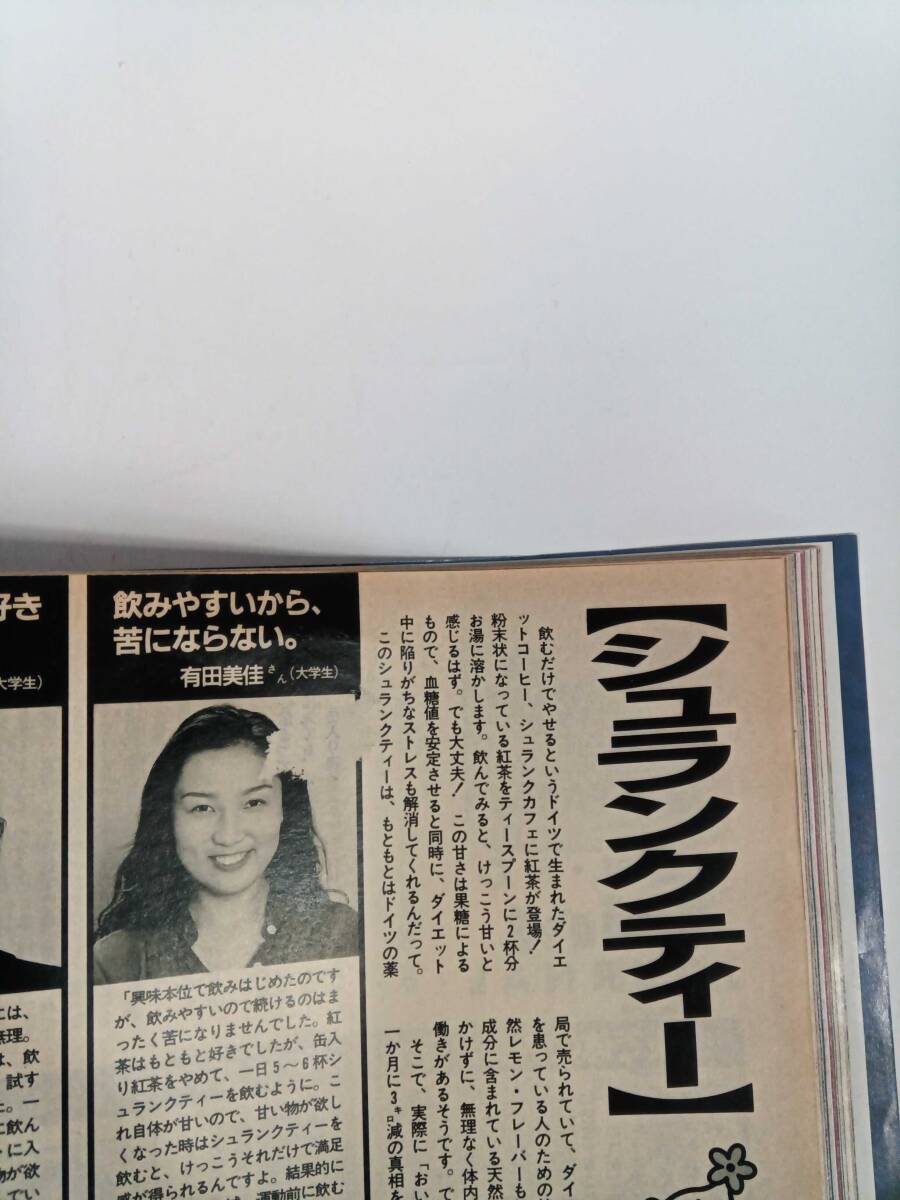 【シュランクティー】
飲むだけでやせるというドイツで生まれたダイエ
ットコーヒー、シュランクカフェに紅茶が登場！
粉末状になっている紅茶をティースプーンに2杯分
お湯に溶かします。飲んでみると、けっこう甘いと
感じるはず。でも大丈夫！ この甘さは果糖による
もので、血糖値を安定させると同時に、ダイエット
中に陥りがちなストレスも解消してくれるんだって。
このシュランクティーは、もともとはドイツの薬
局で売られていて、ダイ
を患っている人のための
然レモン・フレーバーも
成分に含まれている天然
かけずに、無理なく体内
働きがあるそうです。で
そこで、実際に「おい
一か月に3㌔減の真相を
飲みやすいから、
苦にならない。
有田美佳さん（大学生）
「興味本位で飲みはじめたのです
が、飲みやすいので続けるのはま
ったく苦になりませんでした。紅
茶はもともと好きでしたが、缶入
り紅茶をやめて、一日5〜6杯シ
ュランクティーを飲むように。こ
れ自体が甘いので、甘い物が欲し
くなった時はシュランクティーを
飲むと、けっこうそれだけで満足
感が得られるんですよ。結果的に
運動前に飲む
好き
大学生）
には、
無理。
は、飲
試す
た。一
に飲ん
トに入
物が欲
てい